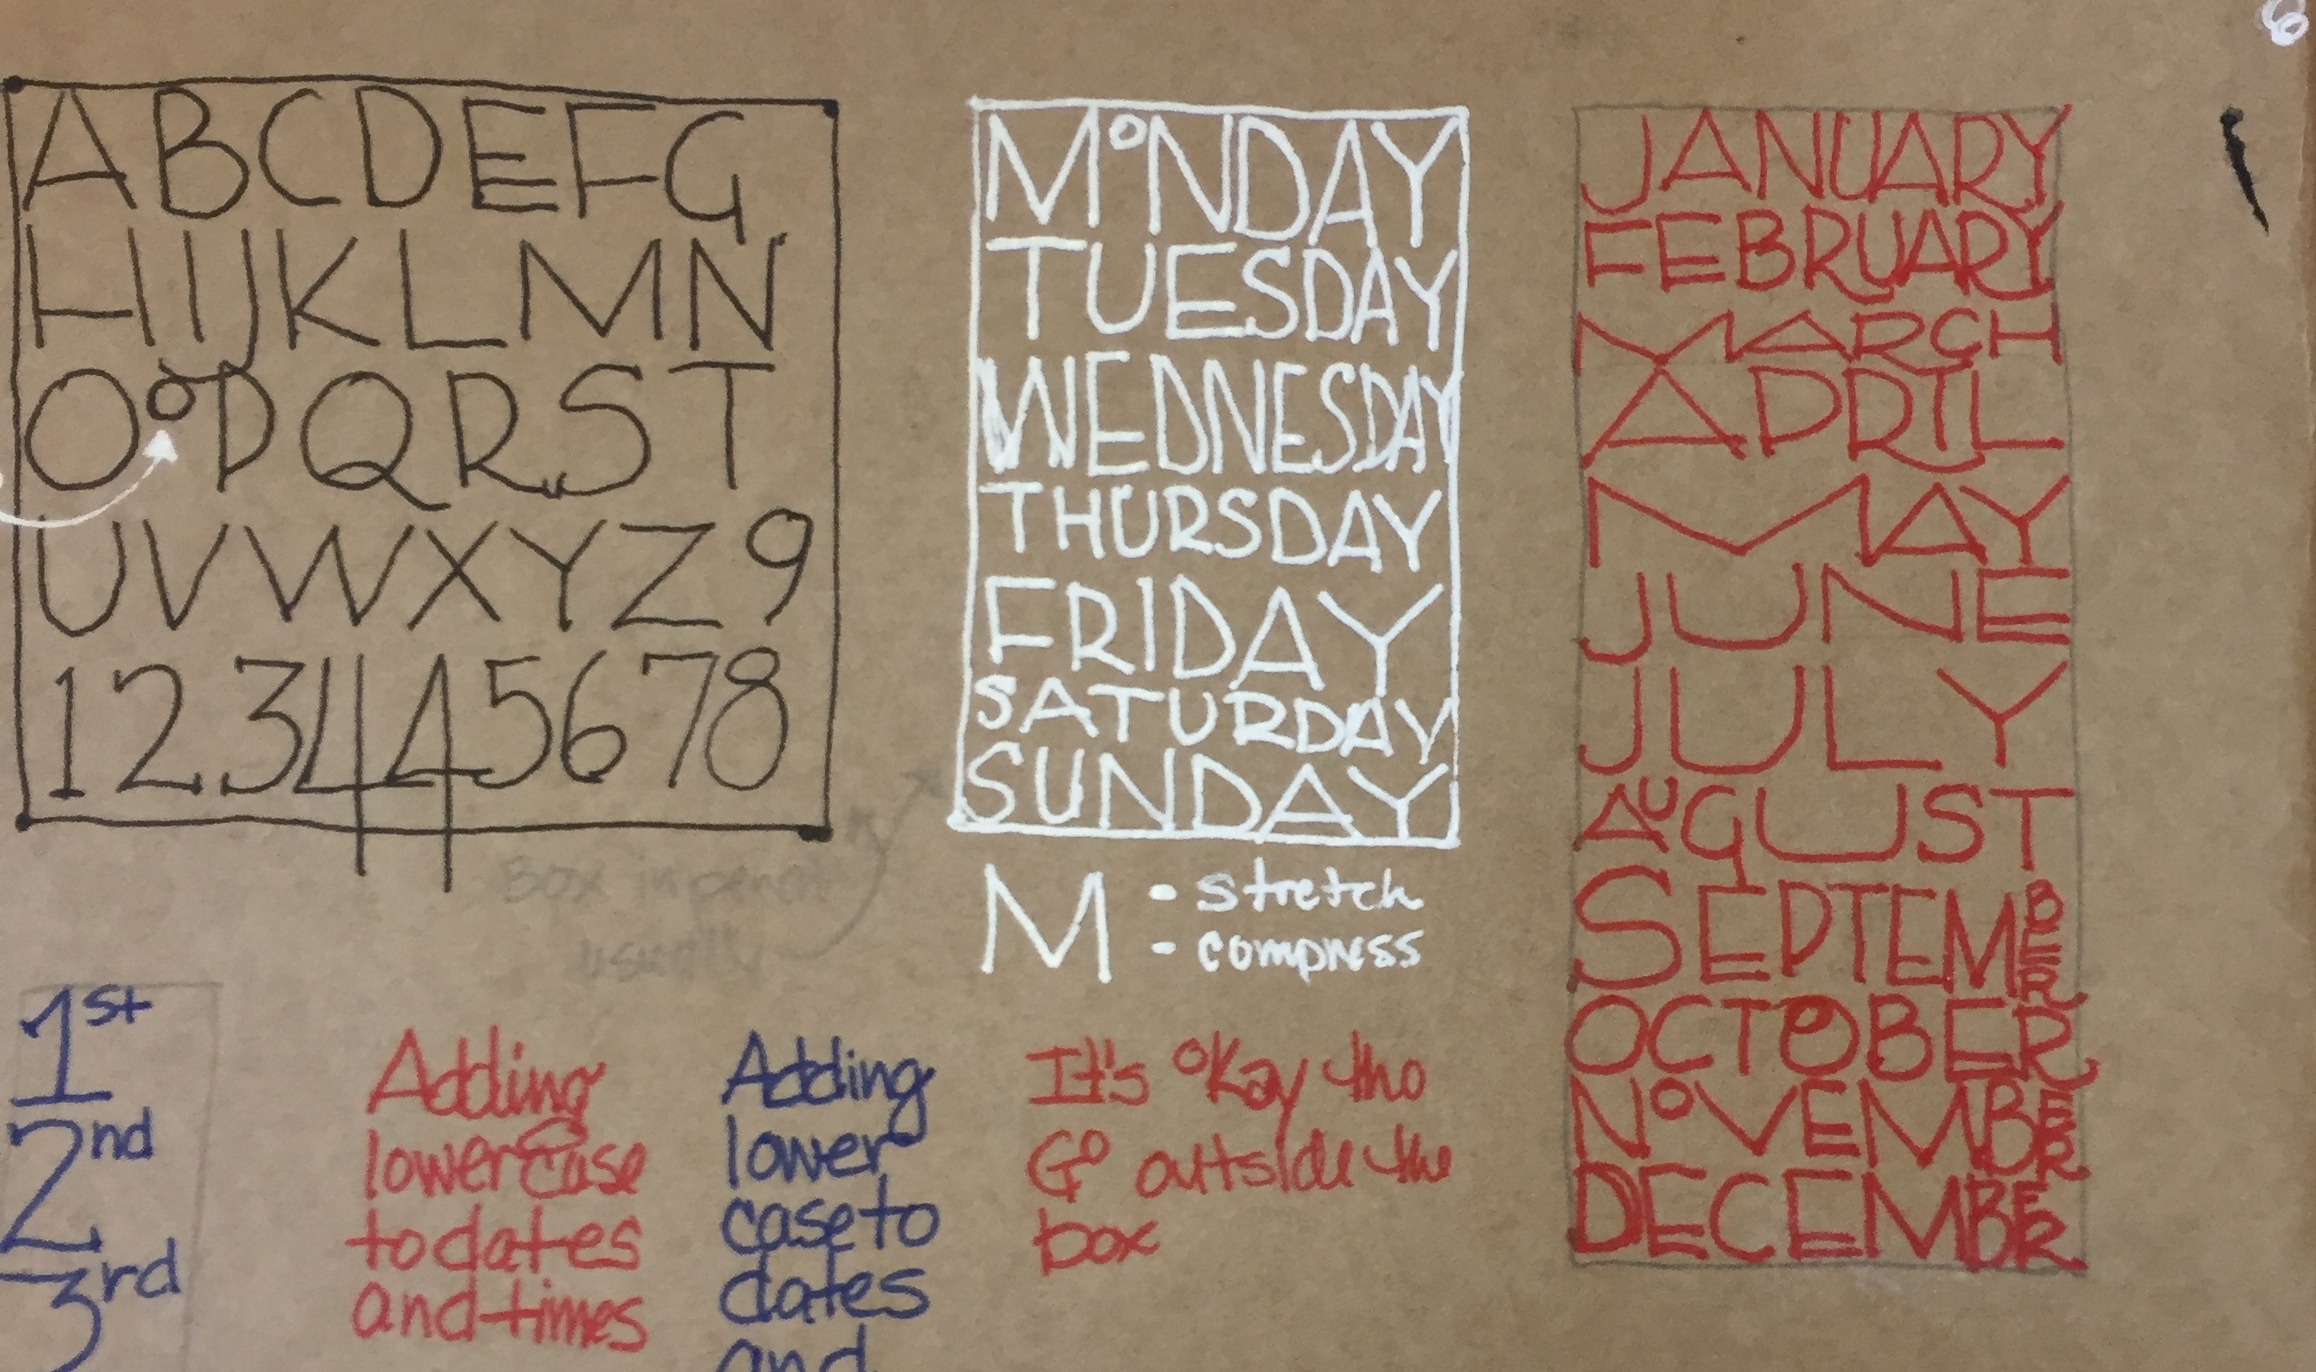 6
ABCDEFG
HIJKLMN
OoPQRST
UVWXYZ9
123445678
MoNDAY
TUESDAY
WEDNESDAY
THURSDAY
FRIDAY
SATURDAY
SUNDAY
JANUARY
FEBRUARY
MARCH
APRIL
MAY
JUNE
JULY
AUGUST
SEPTEMBER
OCTOBER
NoVEMBER
DECEMBER
Box in pencil
usually
M - stretch
- compress
1st
2nd
3rd
Adding
lowercase
to dates
and times
Adding
lower
case to
dates
and
It's okay tho
Go outside the
box